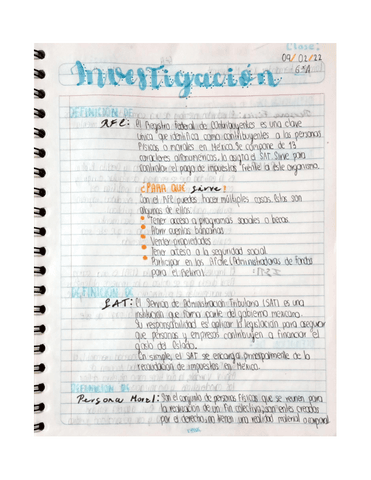 Clase:
09/02/22
6°A
Investigación
DEFINICIÓN DE
RFC: El Registro Federal de Contribuyentes es una clave
única que identifica como contribuyentes a las personas
físicas o morales en México. Se compone de 13
caracteres alfanuméricos, lo asigna el SAT. Sirve para
controlar el pago de impuestos frente a este organismo.
¿PARA QUE sirve?
Con el RFC puedes hacer múltiples cosas. Estas son
algunas de ellas:
Tener acceso a programas sociales o becas
Abrir cuentas bancarias
Vender propiedades
Tener acceso a la seguridad social
Participar en las Afore (Administradoras de fondos
para el Retiro)
DEFINICIÓN DE
SAT: El Servicio de Administración Tributaria (SAT) es una
institución que forma parte del gobierno mexicano.
Su responsabilidad es aplicar la legislación para asegurar
que personas y empresas contribuyen a financiar el
gasto del Estado.
En simple, el SAT se encarga principalmente de la
recaudación de impuestos en México.
DEFINICIÓN DE
Persona Moral: Son el conjunto de personas físicas que se reunen para
la realización de un fin colectivo, son entes creados
por el derecho, no tienen una realidad material o corporal